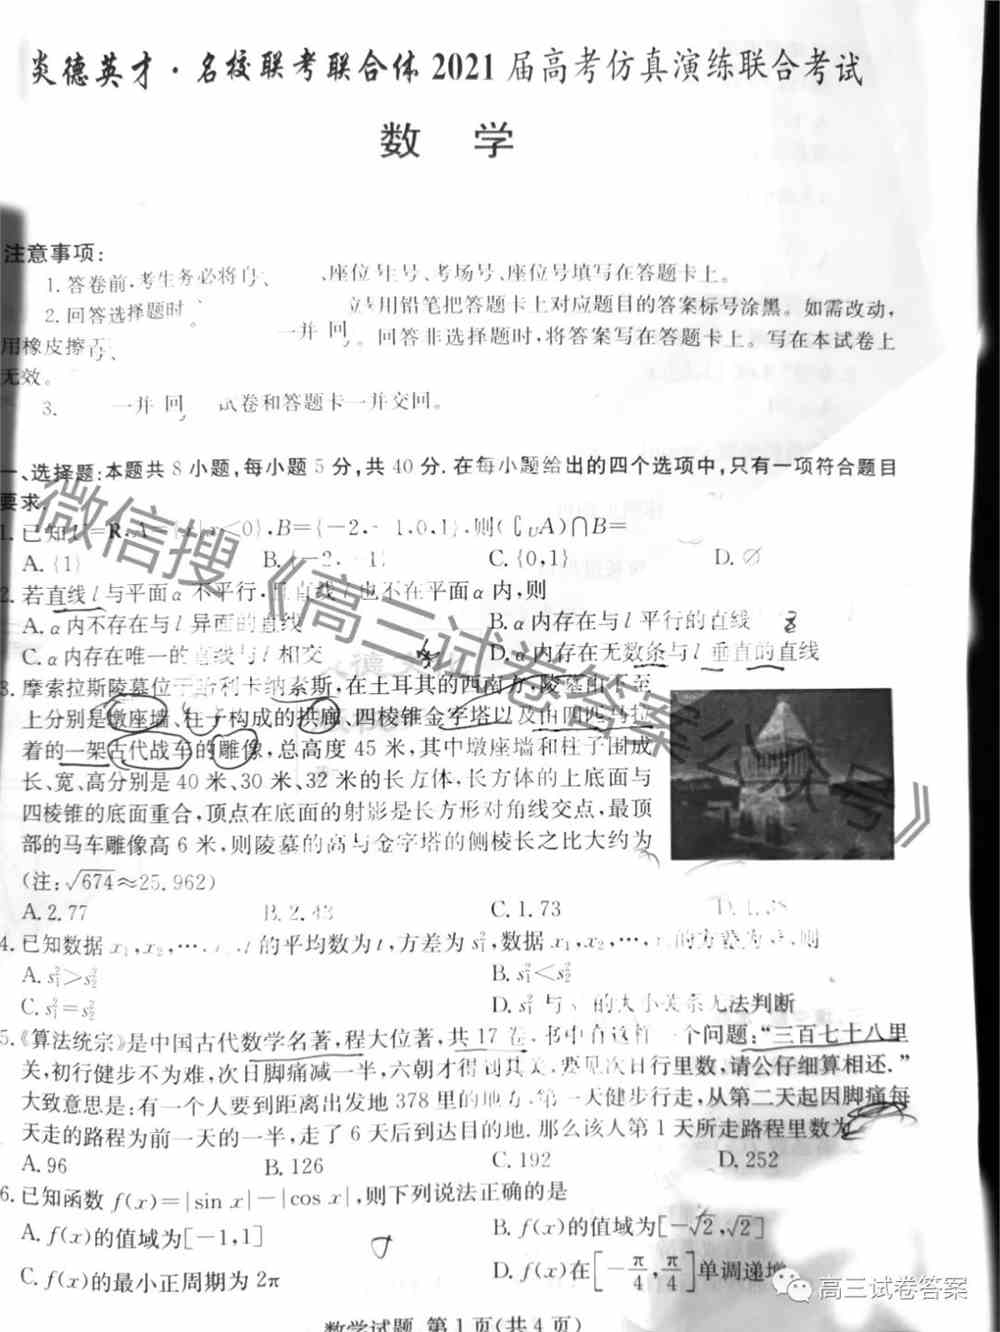 炎德英才·名校联考联合体2021届高考仿真演练联合考试
数 学
注意事项:
1.答卷前,考生务必将 、座位号、考场号、座位号填写在答题卡上。
2.回答选择题时 用铅笔把答题卡上对应题目的答案标号涂黑。如需改动,
用橡皮擦 。回答非选择题时,将答案写在答题卡上。写在本试卷上
无效。
3. 一并 回 试卷和答题卡一并交回。
一、选择题:本题共8小题,每小题5分,共40分.在每小题给出的四个选项中,只有一项符合题目
要求.
1.已知 =R, <0},B={-2,-1,0,1},则(∁UA)∩B=
A.{1} B.{-2,-1} C.{0,1} D.∅
2.若直线l与平面α不平行,且直线l也不在平面α内,则
A.α内不存在与l异面的直线 B.α内存在与l平行的直线
C.α内存在唯一的直线与l相交 D.α内存在无数条与l垂直的直线
3.摩索拉斯陵墓位于哈利卡纳素斯,在土耳其的西南方,陵墓由下至
上分别是墩座墙、柱子构成的拱廊、四棱锥金字塔以及由四匹马拉
着的一架古代战车的雕像,总高度45米,其中墩座墙和柱子围成
长、宽、高分别是40米、30米、32米的长方体,长方体的上底面与
四棱锥的底面重合,顶点在底面的射影是长方形对角线交点,最顶
部的马车雕像高6米,则陵墓的高与金字塔的侧棱长之比大约为
(注:√674≈25.962)
A.2.77 B.2.43 C.1.73 D.1.
4.已知数据x1,x2,…, 的平均数为t,方差为s₁²,数据x1,x2,…, 的方差为 ,则
A.s₁²>s₂² B.s₁²<s₂²
C.s₁²=s₂² D.s₁²与 的大小关系无法判断
5.《算法统宗》是中国古代数学名著,程大位著,共17卷,书中有这样一个问题:“三百七十八里
关,初行健步不为难,次日脚痛减一半,六朝才得到其关,要见次日行里数,请公仔细算相还.”
大致意思是:有一个人要到距离出发地378里的地方,第一天健步行走,从第二天起因脚痛每
天走的路程为前一天的一半,走了6天后到达目的地.那么该人第1天所走路程里数为
A.96 B.126 C.192 D.252
6.已知函数f(x)=|sin x|-|cos x|,则下列说法正确的是
A.f(x)的值域为[-1,1] B.f(x)的值域为[-√2,√2]
C.f(x)的最小正周期为2π D.f(x)在[-π/4,π/4]单调递增
数学试题 第1页(共4页)
微信搜《高三试卷答案公众号》
高三试卷答案